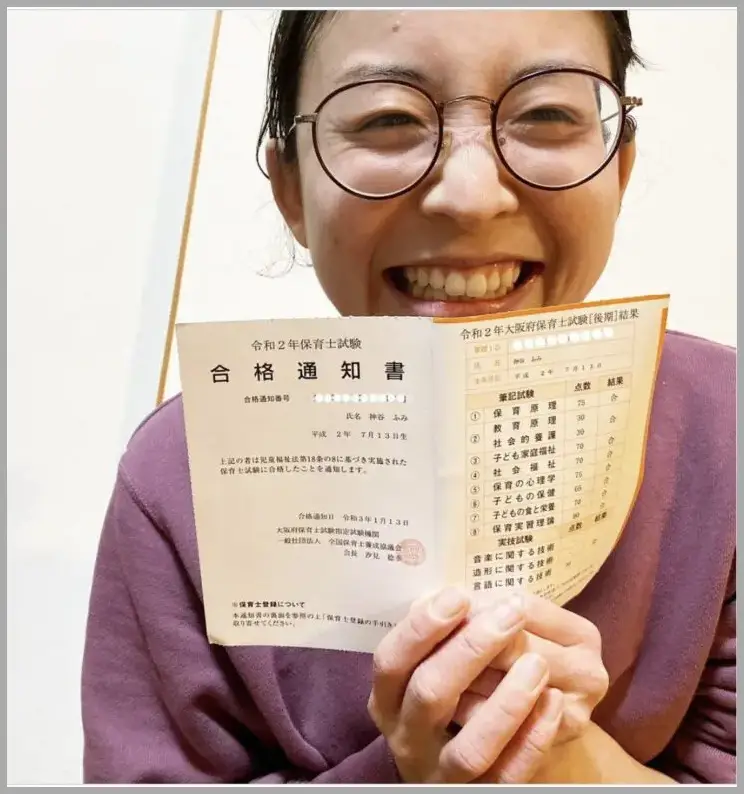 令和2年保育士試験
合格通知書
合格通知番号
氏名 神谷 ふみ
平成 2年 7月13日生
上記の者は児童福祉法第18条の8に基づき実施された
保育士試験に合格したことを通知します。
合格通知日 令和3年1月13日
大阪府保育士試験指定試験機関
一般社団法人 全国保育士養成協議会
会長 汐見 稔幸
※保育士登録について
本通知書の裏面を参照の上「保育士登録の手引き
取り寄せてください。
令和2年大阪府保育士試験[後期]結果
氏 名 神谷 ふみ
生年月日 平成 2年 7月13日
筆記試験 点数 結果
① 保育原理 75 合
教育原理 30
② 社会的養護 30 合
③ 子ども家庭福祉 70 合
④ 社会福祉 70 合
⑤ 保育の心理学 合
⑥ 子どもの保健 合
⑦ 子どもの食と栄養 合
⑧ 保育実習理論 合
実技試験 点数 結果
音楽に関する技術
造形に関する技術
言語に関する技術